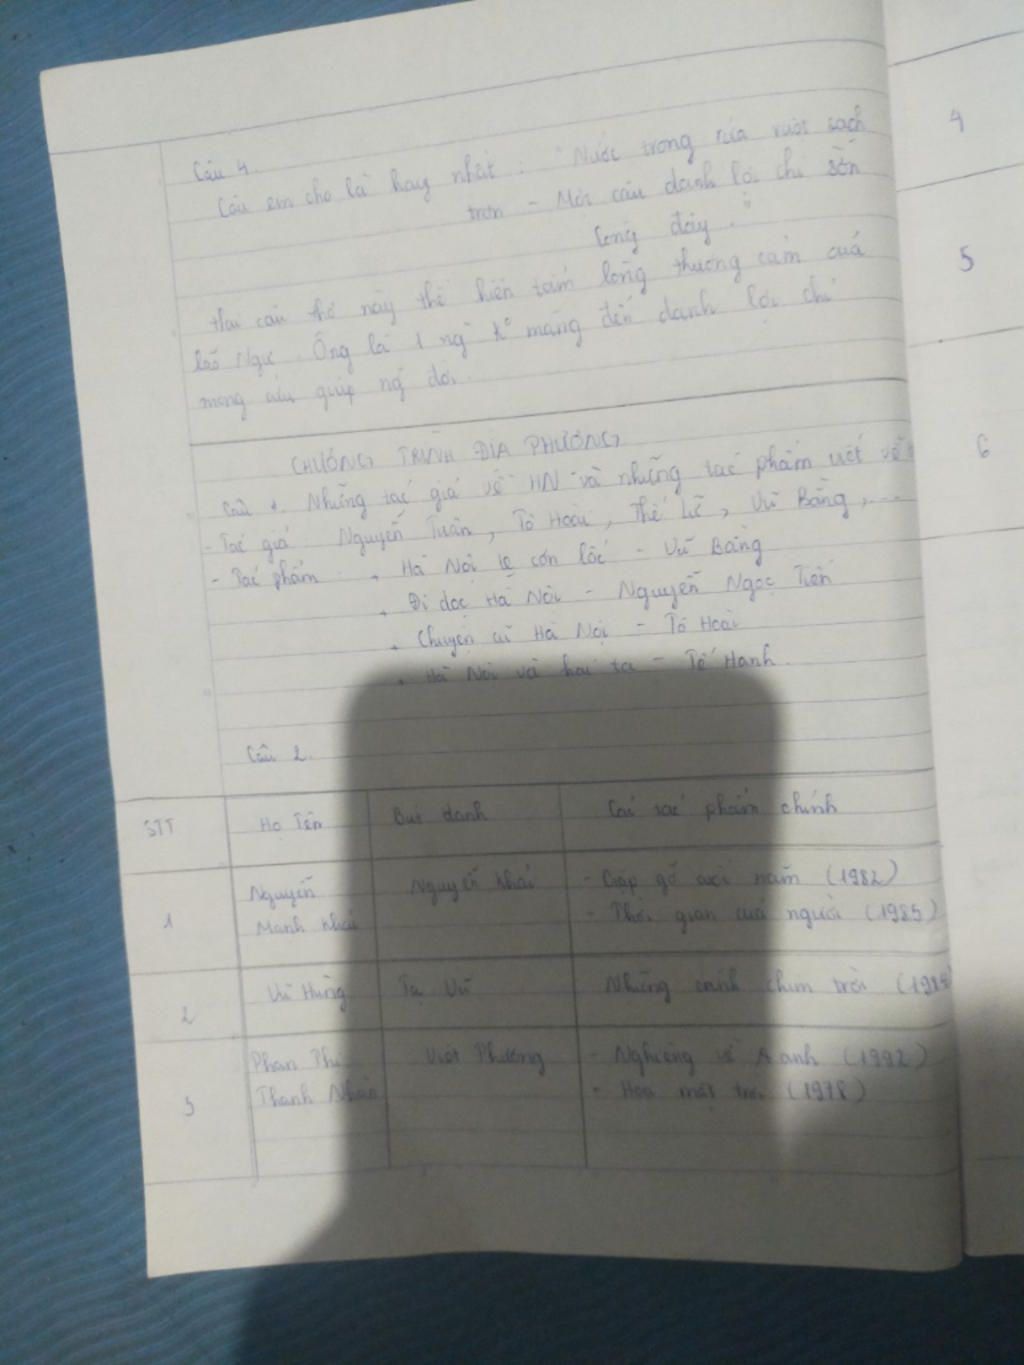 Câu 4.
Câu em cho là hay nhất : "Nước trong rửa ruột sạch
trơn - Một câu danh lợi chi sờn
lòng đây."
Hai câu thơ này thể hiện tấm lòng thương cảm của
lão Ngư. Ông là 1 ng k° màng đến danh lợi chỉ
mong cứu giúp ng đời.
CHƯƠNG TRÌNH ĐỊA PHƯƠNG
Câu 1. Những tác giả về HN và những tác phẩm viết về
- Tác giả : Nguyễn Tuân, Tô Hoài, Thế Lữ, Vũ Bằng,...
- Tác phẩm : + Hà Nội cơn lốc - Vũ Bằng
+ Đi dọc Hà Nội - Nguyễn Ngọc Tiến
+ Chuyện cũ Hà Nội - Tô Hoài
+ Hà Nội và hai ta - Tế Hanh.
Câu 2.
STT Họ Tên Bút danh Các tác phẩm chính
1 Nguyễn Mạnh Khải Nguyễn Khải - Gặp gỡ cuối năm (1982)
- Thời gian của người (1985)
2 Vũ Hùng Tạ Vũ Những cánh chim trời (1984
3 Phan Thị Thanh Nhàn - Nghiêng về anh (1992)
- Hoa mặt trời (1978)
4
5
6